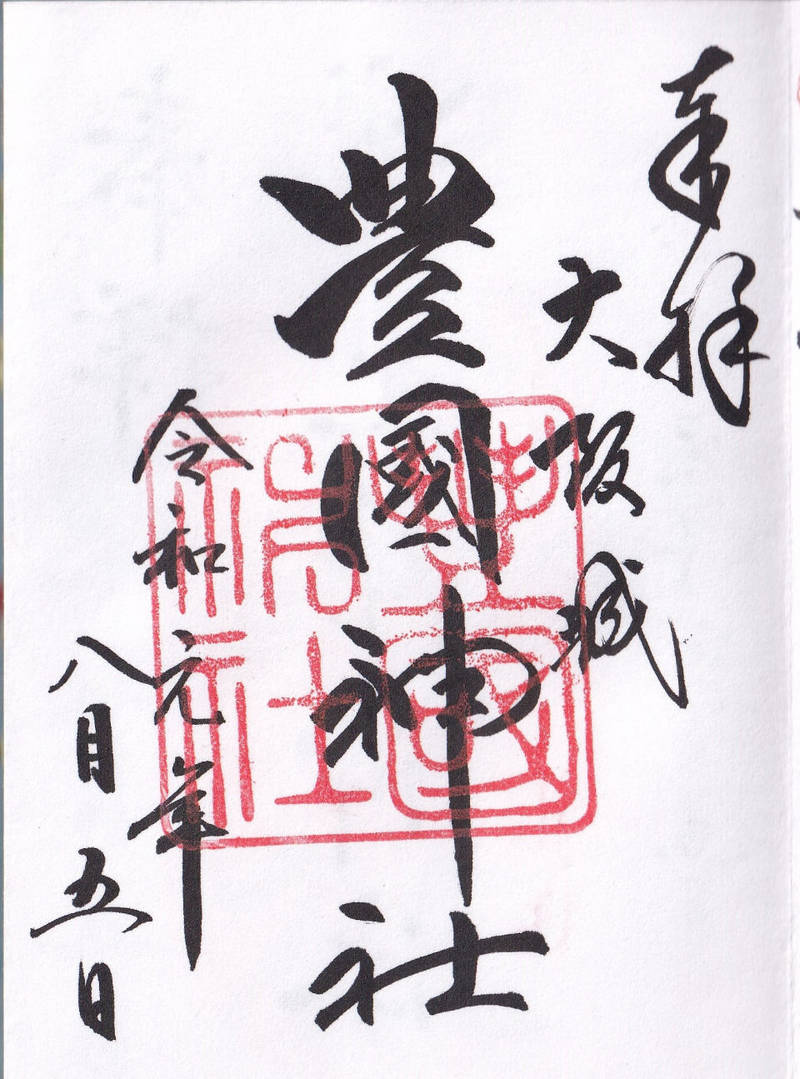 奉拝
大阪城
豊國神社
令和元年
八月五日
豊國神社